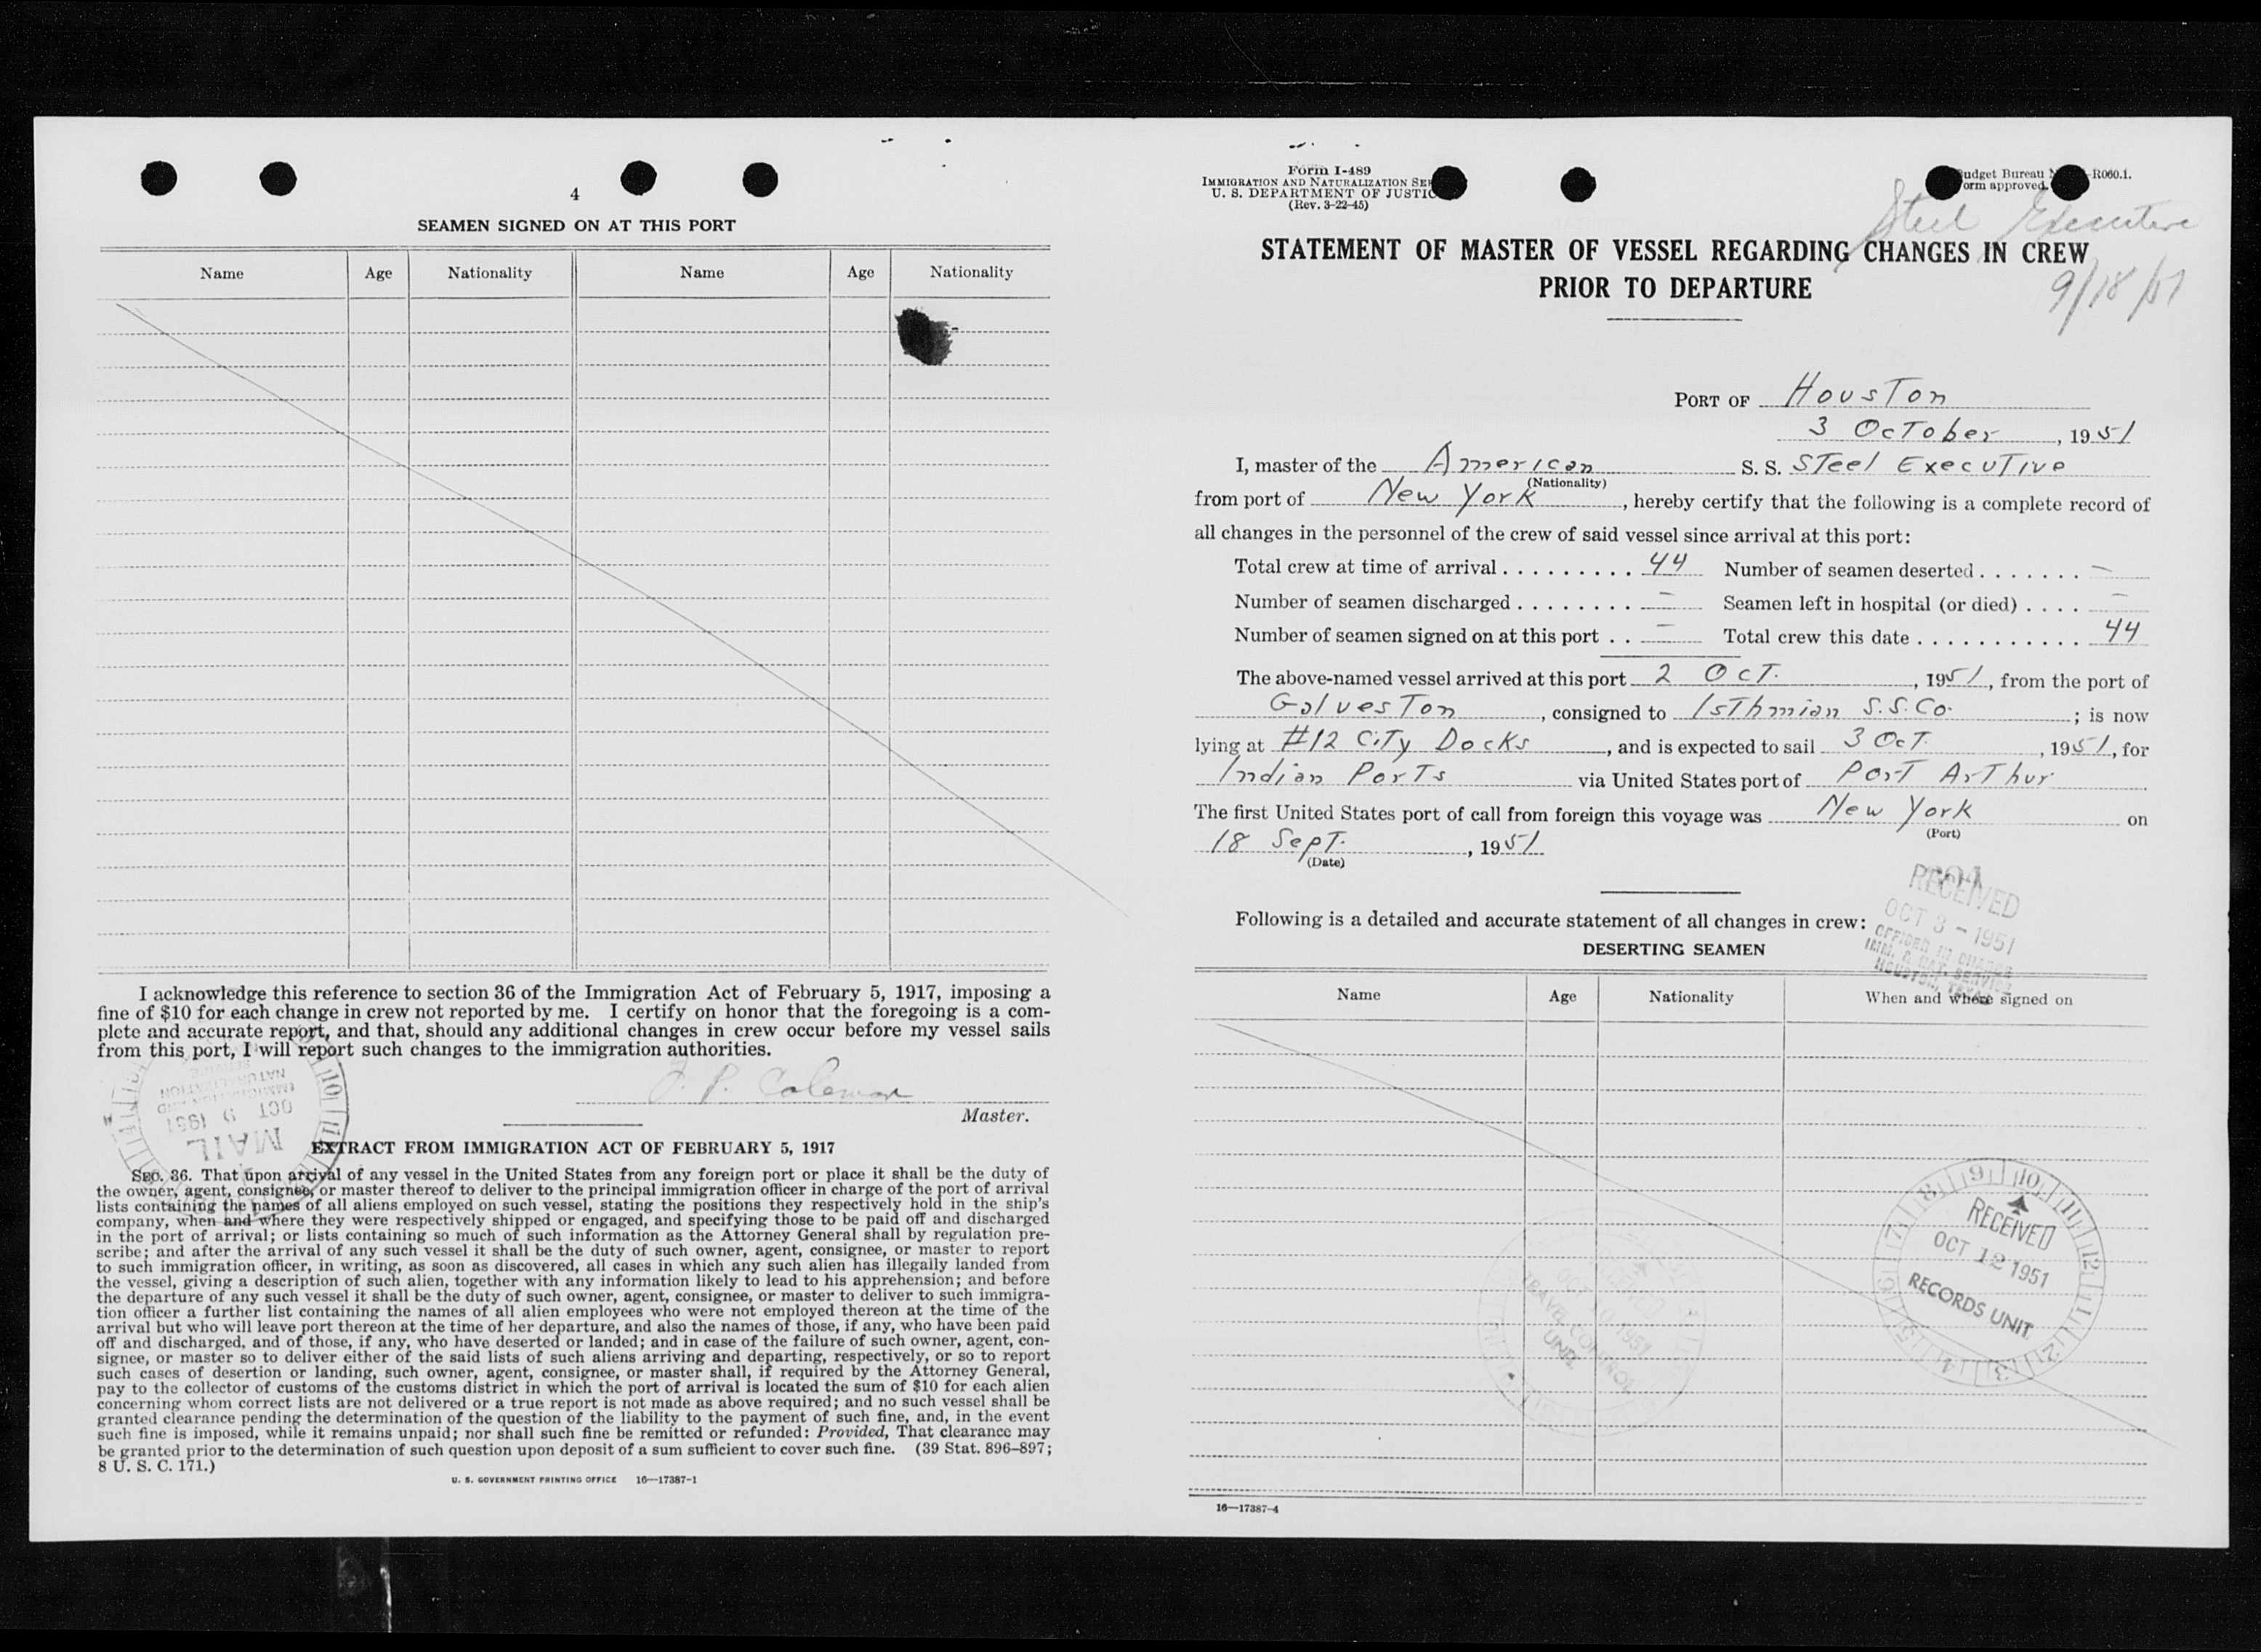 4
SEAMEN SIGNED ON AT THIS PORT
Name Age Nationality Name Age Nationality
I acknowledge this reference to section 36 of the Immigration Act of February 5, 1917, imposing a
fine of $10 for each change in crew not reported by me. I certify on honor that the foregoing is a com-
plete and accurate report, and that, should any additional changes in crew occur before my vessel sails
from this port, I will report such changes to the immigration authorities.
P. Coleman
Master.
MAIL
OCT 9 1951
IMMIGRATION AND
NATURALIZATION
SERVICE
EXTRACT FROM IMMIGRATION ACT OF FEBRUARY 5, 1917
SEC. 36. That upon arrival of any vessel in the United States from any foreign port or place it shall be the duty of
the owner, agent, consignee, or master thereof to deliver to the principal immigration officer in charge of the port of arrival
lists containing the names of all aliens employed on such vessel, stating the positions they respectively hold in the ship's
company, when and where they were respectively shipped or engaged, and specifying those to be paid off and discharged
in the port of arrival; or lists containing so much of such information as the Attorney General shall by regulation pre-
scribe; and after the arrival of any such vessel it shall be the duty of such owner, agent, consignee, or master to report
to such immigration officer, in writing, as soon as discovered, all cases in which any such alien has illegally landed from
the vessel, giving a description of such alien, together with any information likely to lead to his apprehension; and before
the departure of any such vessel it shall be the duty of such owner, agent, consignee, or master to deliver to such immigra-
tion officer a further list containing the names of all alien employees who were not employed thereon at the time of the
arrival but who will leave port thereon at the time of her departure, and also the names of those, if any, who have been paid
off and discharged, and of those, if any, who have deserted or landed; and in case of the failure of such owner, agent, con-
signee, or master so to deliver either of the said lists of such aliens arriving and departing, respectively, or so to report
such cases of desertion or landing, such owner, agent, consignee, or master shall, if required by the Attorney General,
pay to the collector of customs of the customs district in which the port of arrival is located the sum of $10 for each alien
concerning whom correct lists are not delivered or a true report is not made as above required; and no such vessel shall be
granted clearance pending the determination of the question of the liability to the payment of such fine, and, in the event
such fine is imposed, while it remains unpaid; nor shall such fine be remitted or refunded: Provided, That clearance may
be granted prior to the determination of such question upon deposit of a sum sufficient to cover such fine. (39 Stat. 896–897;
8 U. S. C. 171.)
U. S. GOVERNMENT PRINTING OFFICE 16—17387-1
Form I-489
IMMIGRATION AND NATURALIZATION SE
U. S. DEPARTMENT OF JUSTIC
(Rev. 3-22-45)
udget Bureau -R060.1.
orm approved.
Steel Executive
9/18/51
STATEMENT OF MASTER OF VESSEL REGARDING CHANGES IN CREW
PRIOR TO DEPARTURE
PORT OF Houston
3 October, 1951
I, master of the American S. S. Steel Executive
(Nationality)
from port of New York, hereby certify that the following is a complete record of
all changes in the personnel of the crew of said vessel since arrival at this port:
Total crew at time of arrival . . . . . . . . . 44 Number of seamen deserted . . . . . . . —
Number of seamen discharged . . . . . . . . — Seamen left in hospital (or died) . . . . —
Number of seamen signed on at this port . . — Total crew this date . . . . . . . . . . . . 44
The above-named vessel arrived at this port 2 Oct., 1951, from the port of
Galveston, consigned to Isthmian S.S. Co.; is now
lying at #12 City Docks, and is expected to sail 3 Oct., 1951, for
Indian Ports via United States port of Port Arthur
The first United States port of call from foreign this voyage was New York on
(Port)
18 Sept., 1951
(Date)
RECEIVED
OCT 3 - 1951
OFFICER IN CHARGE
IMM. & NAT. SERVICE
HOUSTON, TEXAS
Following is a detailed and accurate statement of all changes in crew:
DESERTING SEAMEN
Name Age Nationality When and where signed on
OCT 10 1951
TRAVEL CONTROL
UNIT
RECEIVED
OCT 12 1951
RECORDS UNIT
16—17387-4